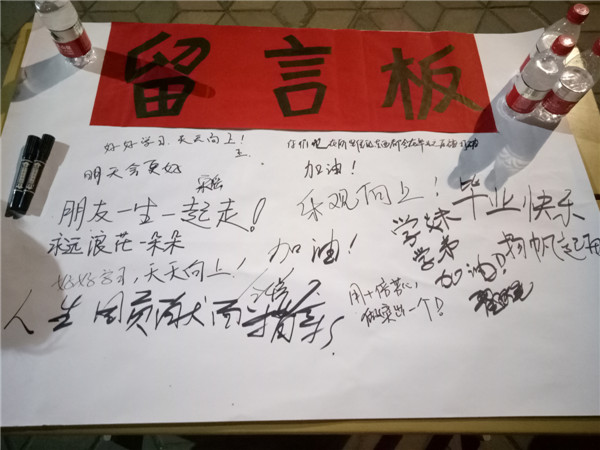 留言板
好好学习、天天向上!
明天会更好
加油!
乐观向上!
朋友一生一起走!
毕业快乐
学妹
学弟
加油!
扬帆起航
永远浪花一朵朵
加油!
好好学习,天天向上!
人生因贡献而精彩
用十倍苦心
做突出一个!